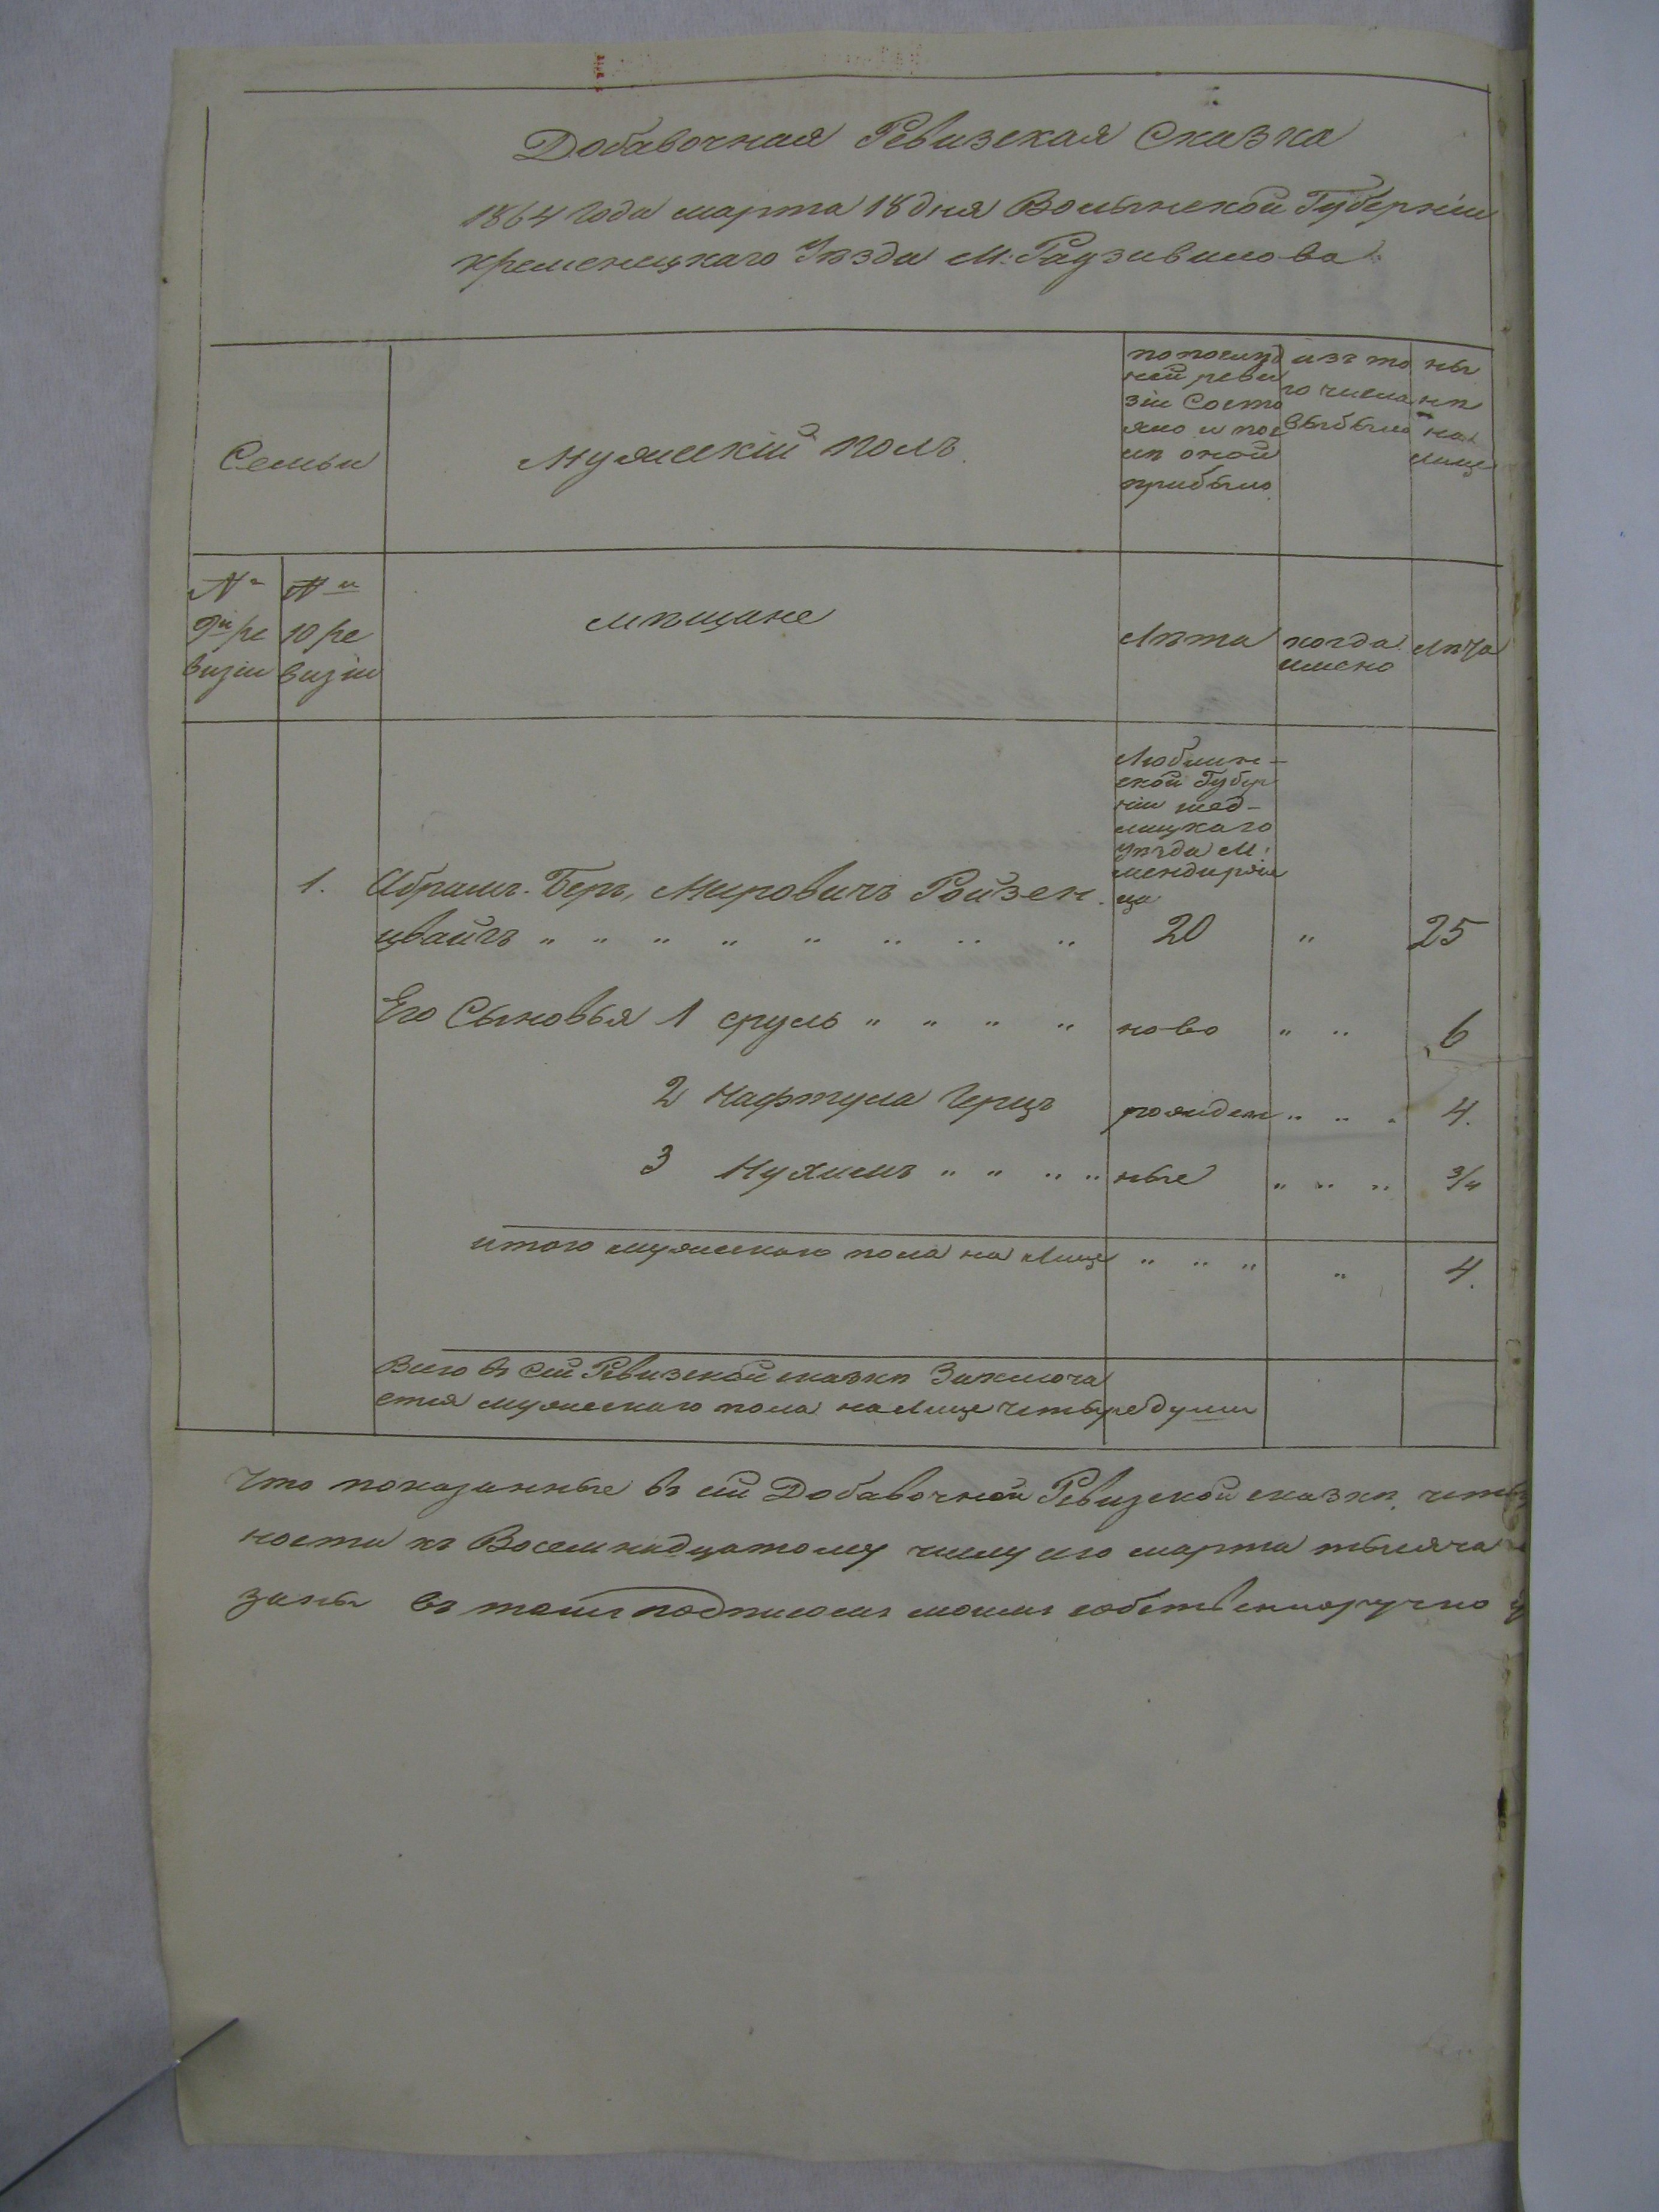 Добавочная Ревизская Сказка
1864 года марта 18 дня Волынской Губерніи
кременецкаго Уѣзда М: Радзивилова
Семьи
Мужескій полъ
по послѣд
ней реви
зіи Состо
яло и пос
лѣ оной
прибыло
изъ то
го числа
выбыло
ны
нѣ
на
лице
№
9й ре
визіи
№
10 ре
визіи
мѣщане
Лѣта
когда
имено
лѣта
Люблин-
ской Губер
ніи
лицкаго
уѣзда М:
ца
1. Абрамъ-Беръ, Мировичъ Ройзен
цвайгъ " " " " " " " " 20 " 25
Его Сыновья 1 сруль " " " " ново " " 6
2 Нафтула Герцъ рожден " " " 4.
3 Нухимъ " " " " ные " " " 3/4
итого мужескаго пола на лице " " " " 4.
Всего въ сей Ревизской сказкѣ Заключа
ется мужескаго пола на лице четыре души
Что показанные въ сей Добавочной Ревизской сказкѣ
ности къ Восемнадцатому числу сего марта тысяча
заны въ томъ подписомъ моимъ собственноручно